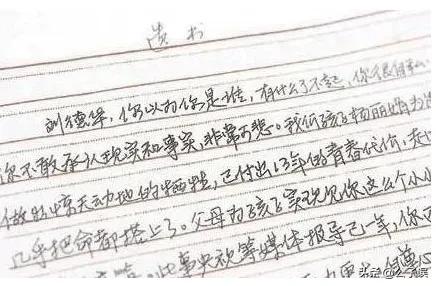 遗书
刘德华,你以为你是谁,有什么了不起,你很自私
你不敢承认现实和事实,非常可悲。我们孩子杨丽娟为
做出惊天动地的牺牲,已付出13年的青春代价,走
几乎把命都搭上了。父母为孩子实现见你这么个小小
此事央视等媒体报导已一年,你
头条@公子娱